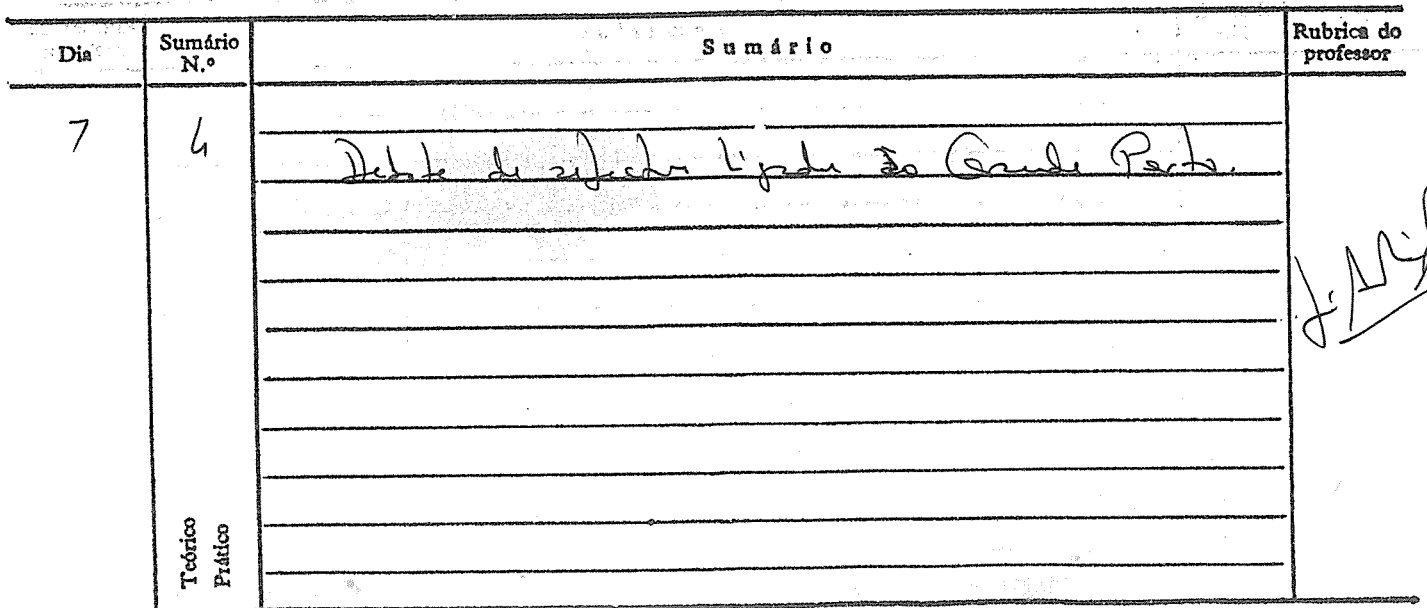 Dia
Sumário N.º
Sumário
Rubrica do professor
7
4
Debate de ligados ao Grande Porto.
Teórico
Prático